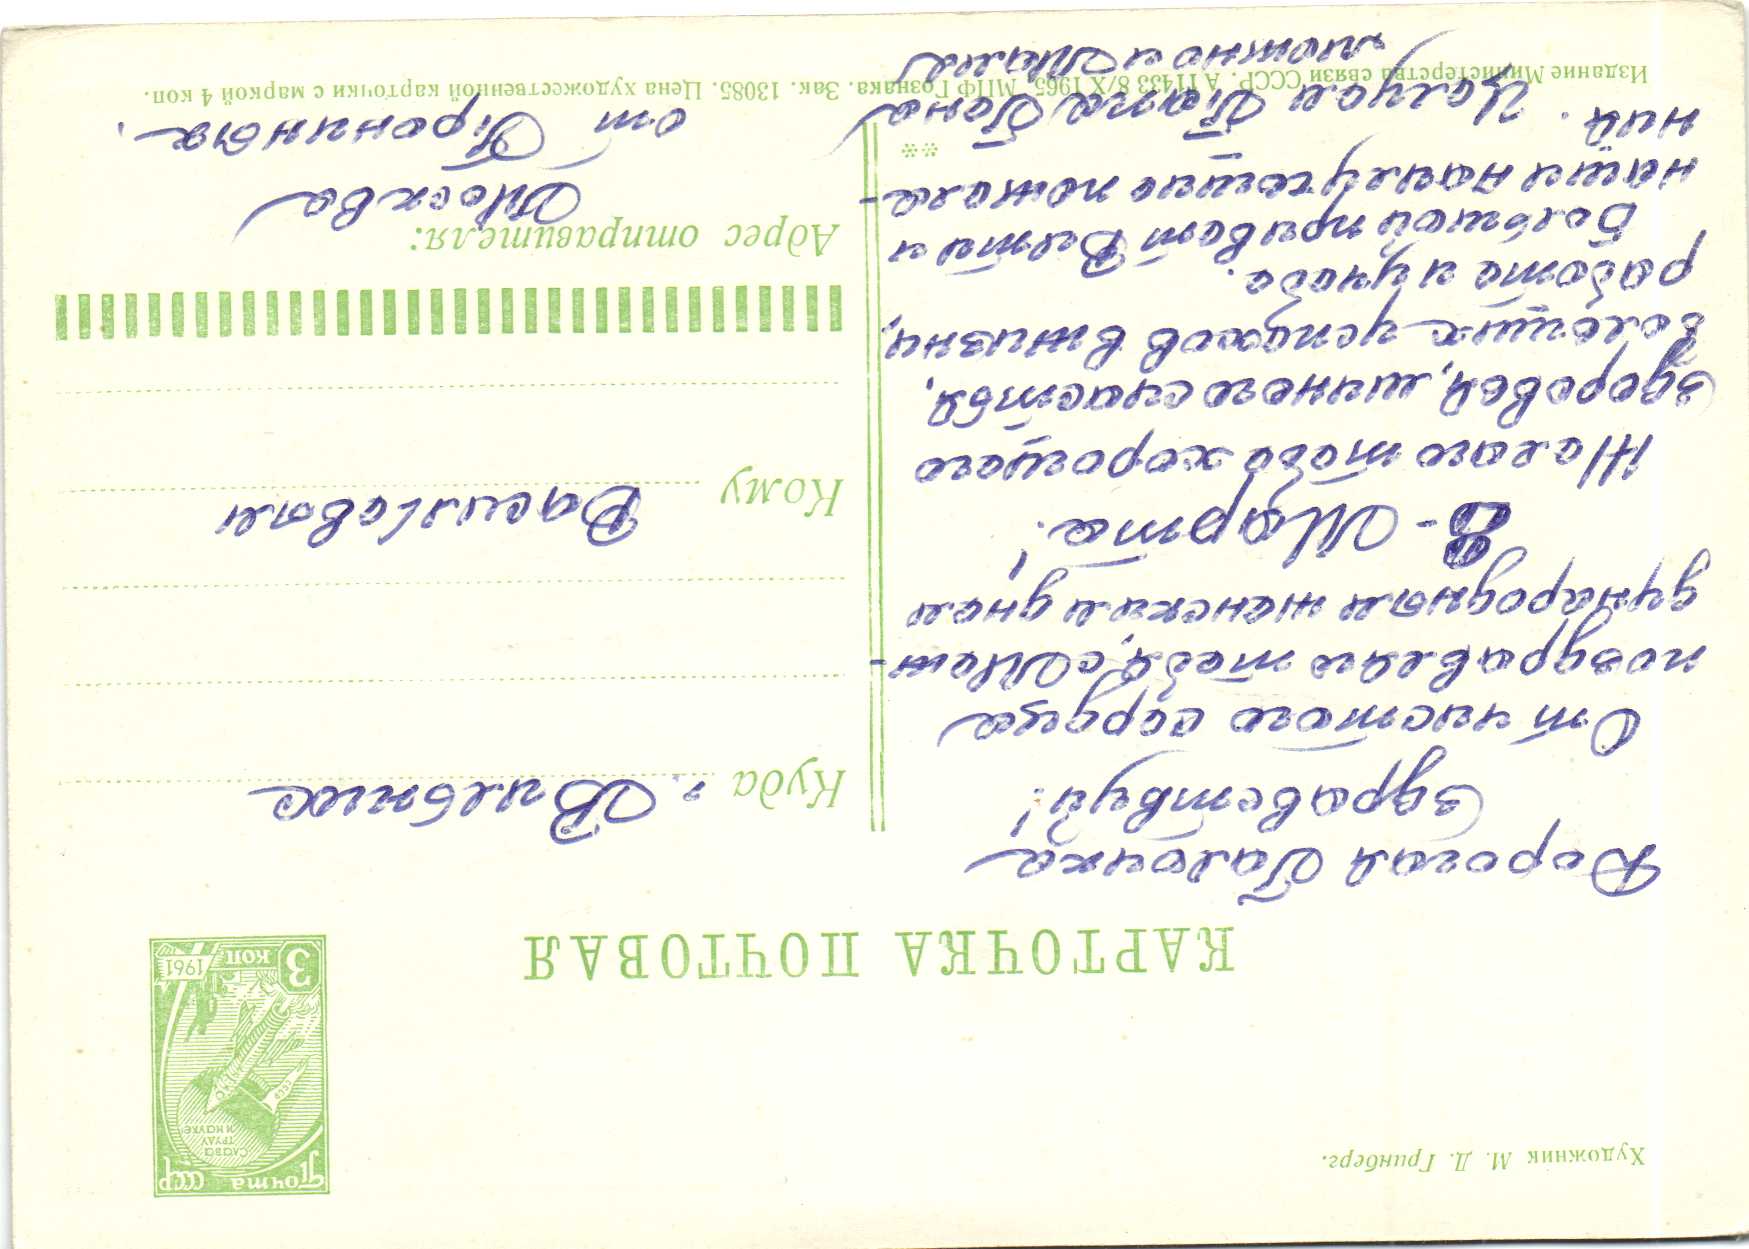 Художник М. Д. Гринберг.
Почта СССР
СЛАВА
ТРУДУ
И НАУКЕ
СССР
3 КОП
1961
КАРТОЧКА ПОЧТОВАЯ
Дорогая Галочка
здравствуй!
От чистого сердца
поздравляем тебя, с Меж-
дународным женским днем
8 - Марта!
Желаю тебе хорошего
здоровья, личного счастья,
больших успехов в жизни,
работе и учебе.
Большой привет Вите и
наши наилучшие пожела-
ния. Целуем
Куда г. Вильнюс
Кому Васильевой
Адрес отправителя:
Москва
от
**
Издание Министерства связи СССР. А 11433 8/X 1965. МПФ Гознака. Зак. 13085. Цена художественной карточки с маркой 4 коп.